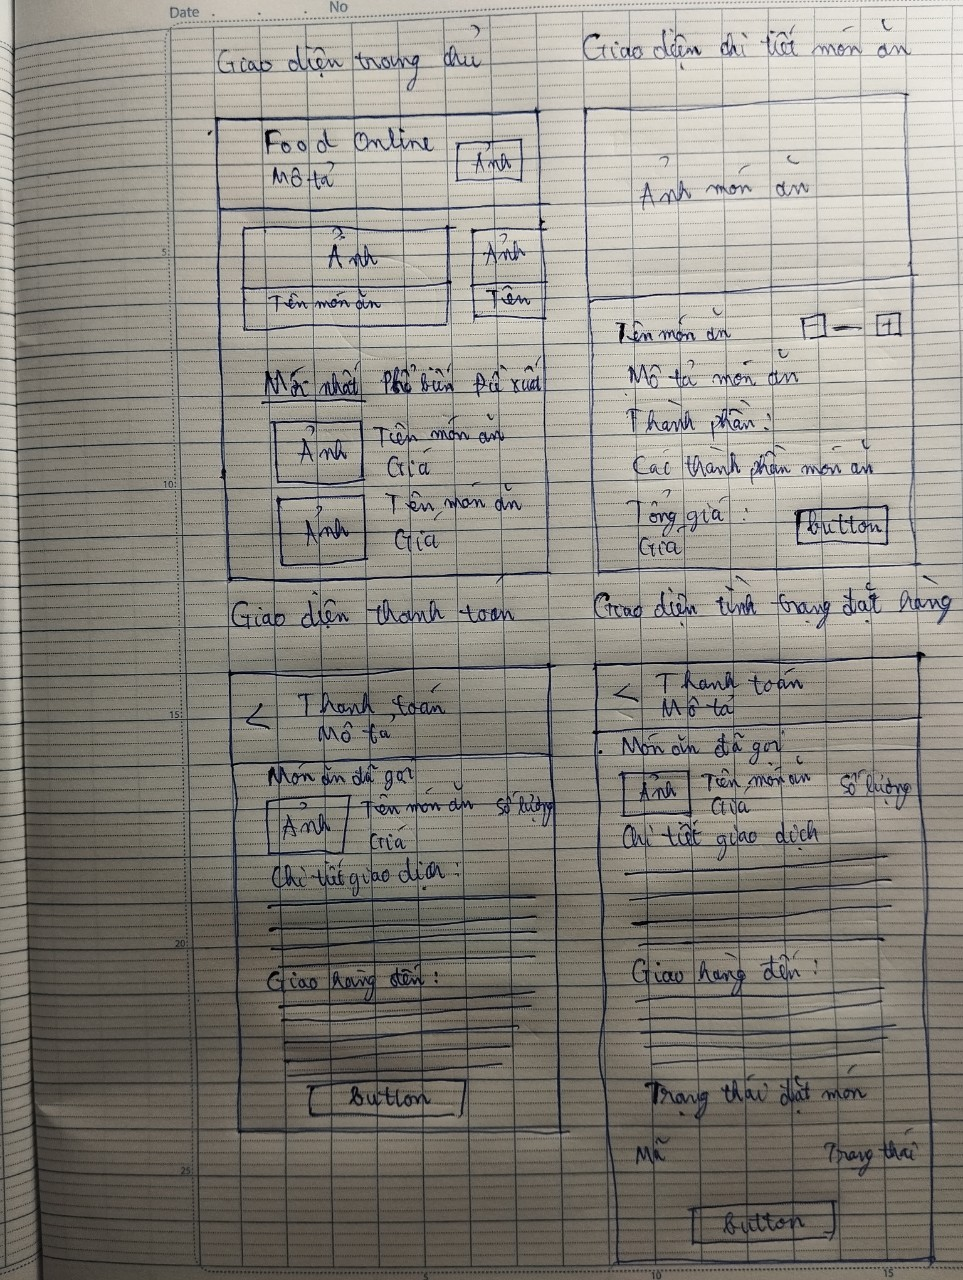 Date
No
Giao diện trang chủ
Food Online
Mô tả
Ảnh
Ảnh
Tên món ăn
Ảnh
Tên
Mới nhất Phổ biến Đề xuất
Ảnh
Tên món ăn
Giá
Ảnh
Tên món ăn
Giá
Giao diện chi tiết món ăn
Ảnh món ăn
Tên món ăn
- +
Mô tả món ăn
Thành phần:
Các thành phần món ăn
Tổng giá:
Giá
Button
Giao diện thanh toán
< Thanh toán
Mô tả
Món ăn đã gọi
Ảnh
Tên món ăn Số lượng
Giá
Chi tiết giao dịch:
Giao hàng đến:
Button
Giao diện tình trạng đặt hàng
< Thanh toán
Mô tả
Món ăn đã gọi
Ảnh
Tên món ăn Số lượng
Giá
Chi tiết giao dịch
Giao hàng đến:
Trạng thái đặt món
Mã Trạng thái
Button
5
10
15
20
25
5
10
15